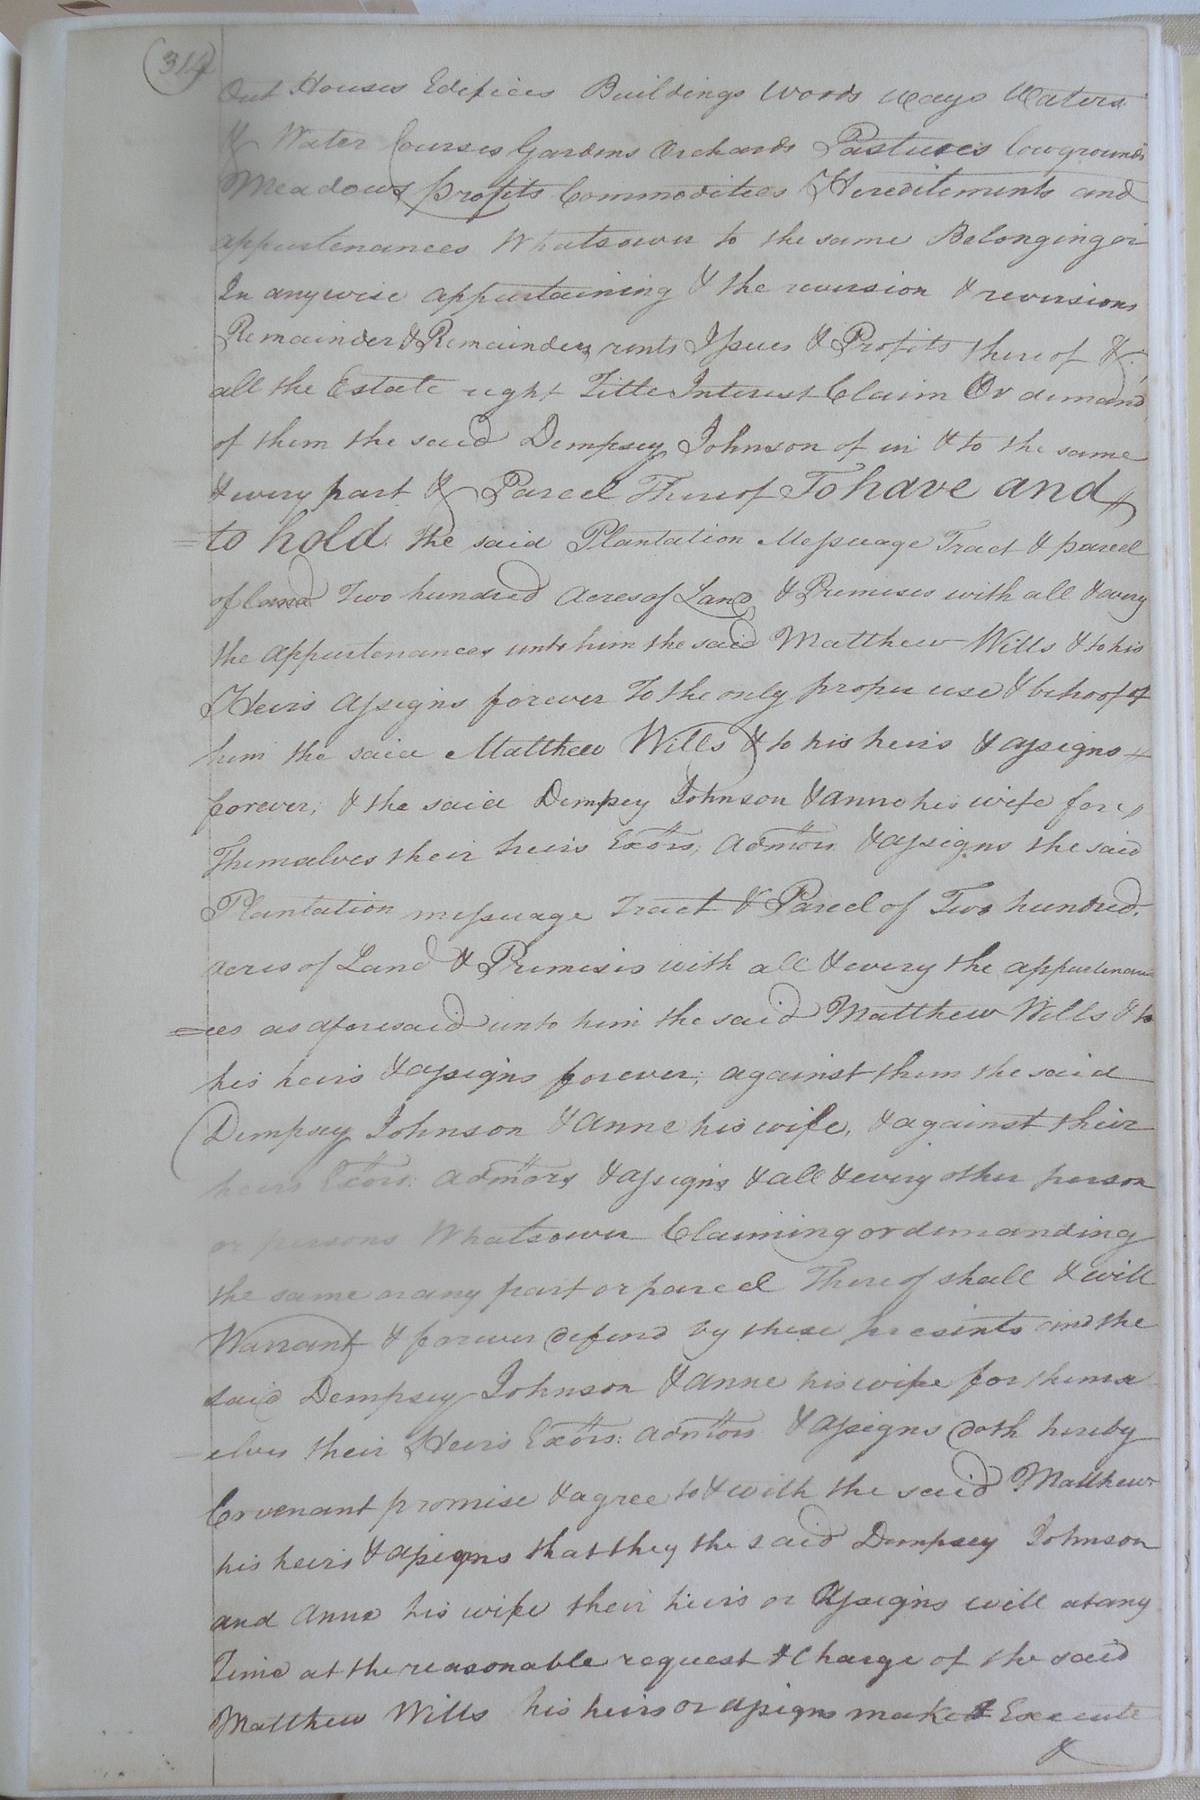 (314)
Out Houses Edifices Buildings Woods ways Waters
& Water Courses Gardens Orchards Pastures lowgrounds
Meadows profits Commodities Hereditements and
appurtenances Whatsower to the same Belonging or
In anywise appurtaining & the reversion & reversions
Remainder & Remainders rents Issues & Profits there of &
all the Estate right Title Interest Claim Or demand
of them the said Dempsey Johnson of in & to the same
& every part & Parcel There of To have and
=to hold the said Plantation Messuage Tract & parcel
of land Two hundred acres of Land & Premises with all & every
the appurtenances unto him the said Matthew Wills & to his
Heirs assigns forever To the only proper use & behoof of
him the said Matthew Wills & to his heirs & assigns
forever; & the said Dempsey Johnson & anne his wife for
Themselves their heirs Exōrs, admōrs & assigns the said
Plantation messuage Tract & Parcel of Two hundred
acres of Land & Premises with all & every the appurtenan
=ces as aforesaid unto him the said Matthew Wills & to
his heirs & assigns forever; against them the said
Dempsey Johnson & anne his wife, & against their
heirs Exōrs: admōrs & assigns & all & every other person
or persons Whatsower Claiming or demanding
the same or any part or parcel There of shall & will
Warrant & forever defend by these presents and the
said Dempsey Johnson & anne his wife for thems
elves their Heirs Exōrs: admōrs & assigns doth hereby
Covenant promise & agree to & with the said Matthew
his heirs & assigns that they the said Dempsey Johnson
and Anne his wife their heirs or assigns will at any
Time at the reasonable request & Charge of the said
Matthew Wills his heirs or assigns make & Execute
&